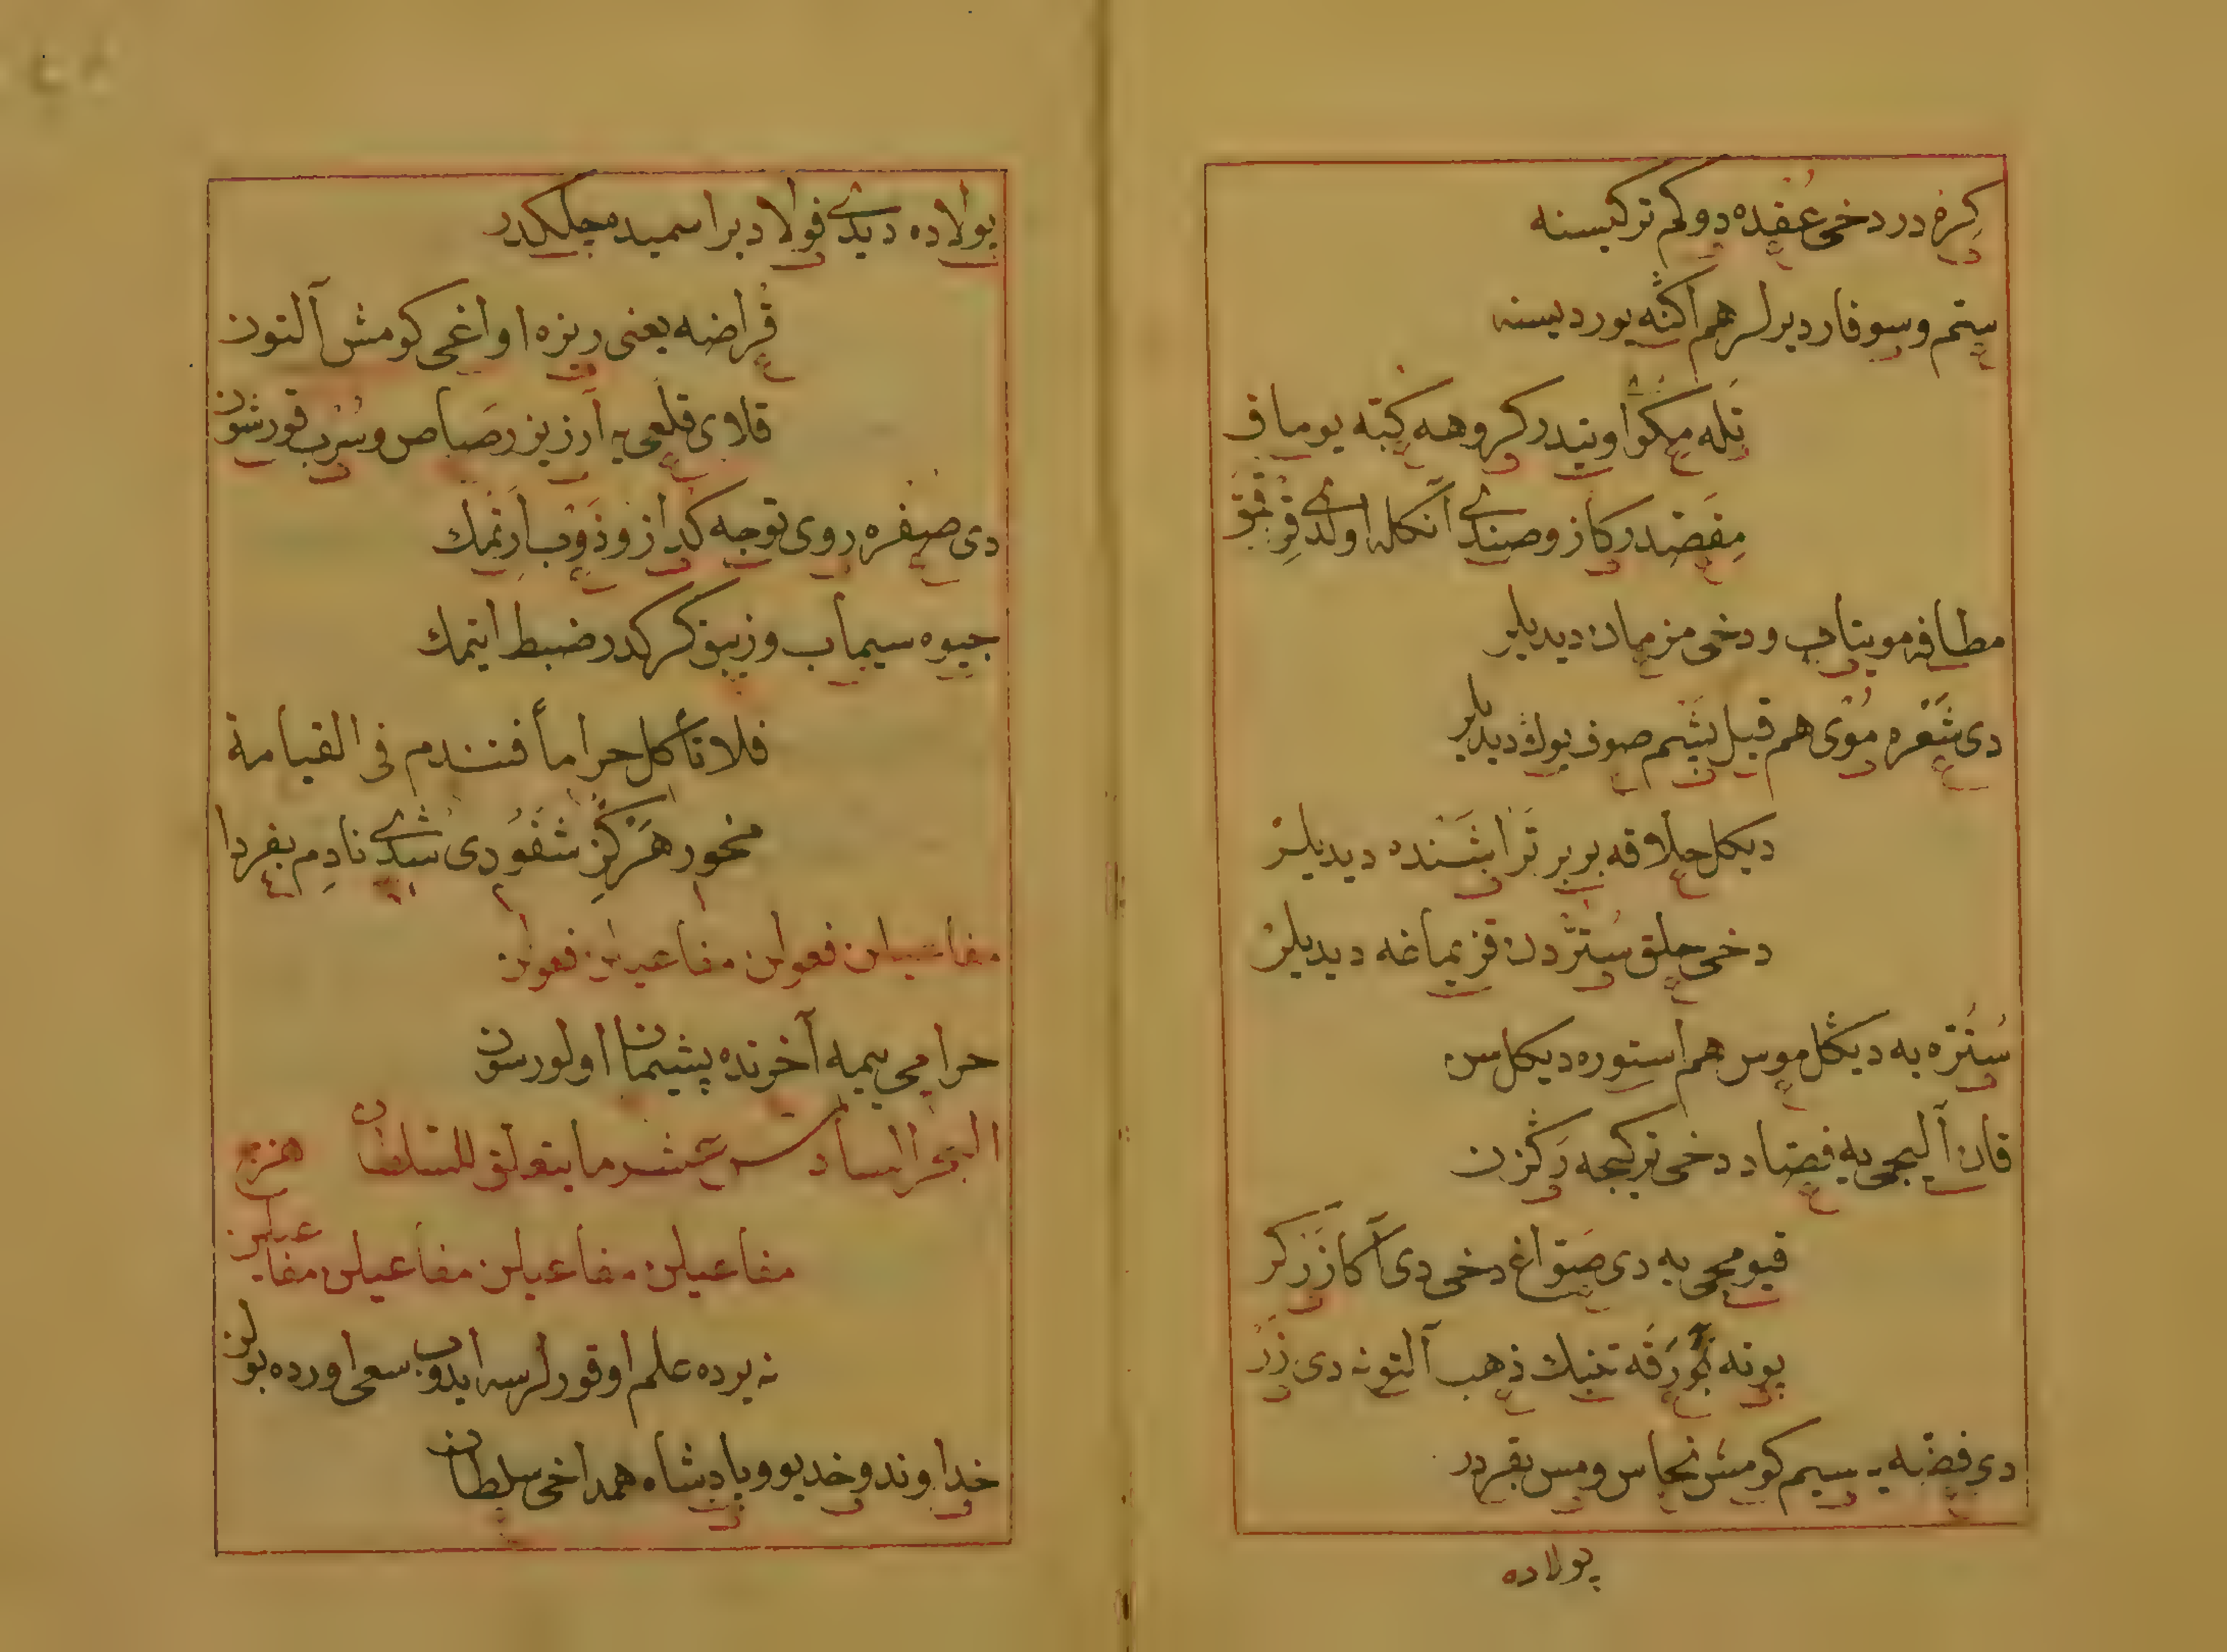 كره در دخی عقده دوكم تركیسنه
ستم و سوفار دیرلر هم اكنه یوردیسنه
تله مكوا اویتدر كروهه كبه یوماق
مقصدر كاز وصندی آنكله اولدی قرقمق
مطافه مویتاب و دخی مزمان دیدیلر
دی شعره موی هم قیل پشم صوف یوك دیدیلر
دیكل حلاقه بربر تراشنده دیدیلر
دخی حلق ستردن قزیماغه دیدیلر
سترّه یه دیكل موس هم استوره دیكلسن
قان آلیجی یه فصاد دخی تركیجه رگزن
قیومجی یه دی صوّاغ دخی دی آكا زرگر
پوته ورقه تنك ذهب آلتونه دی زر
دی فضه یه سیم كومش نحاس و مس بقردر
پولاده
پولاده دیدی فولاد براسمیدمجلكدر
قراضه یعنی ریزه اواغی كومش آلتون
قلای قلعی یه آرزیز رصاص و سرب قورشون
دی صفره روی توجه كداز و ذوب ارتمك
جیوه سیماب و زیبق كركدر ضبط ایتمك
فلا تأكل حراماً فتندم فی القیامة
مخور هرگز شفودی شدی نادم بفردا
مفاعیلن فعولن مفاعیلن فعولن
حرامی یمیه آخرنده پشیمان اولورسون
البحر السادس عشر ما یتعلق للسلطان هزج
مفاعیلن مفاعیلن مفاعیلن مفاعیلن
نه یرده علم اوقورلرسه ایدوب سعی اورده بولن
خداوند و خدیو و پادشاه همداخی سلطان